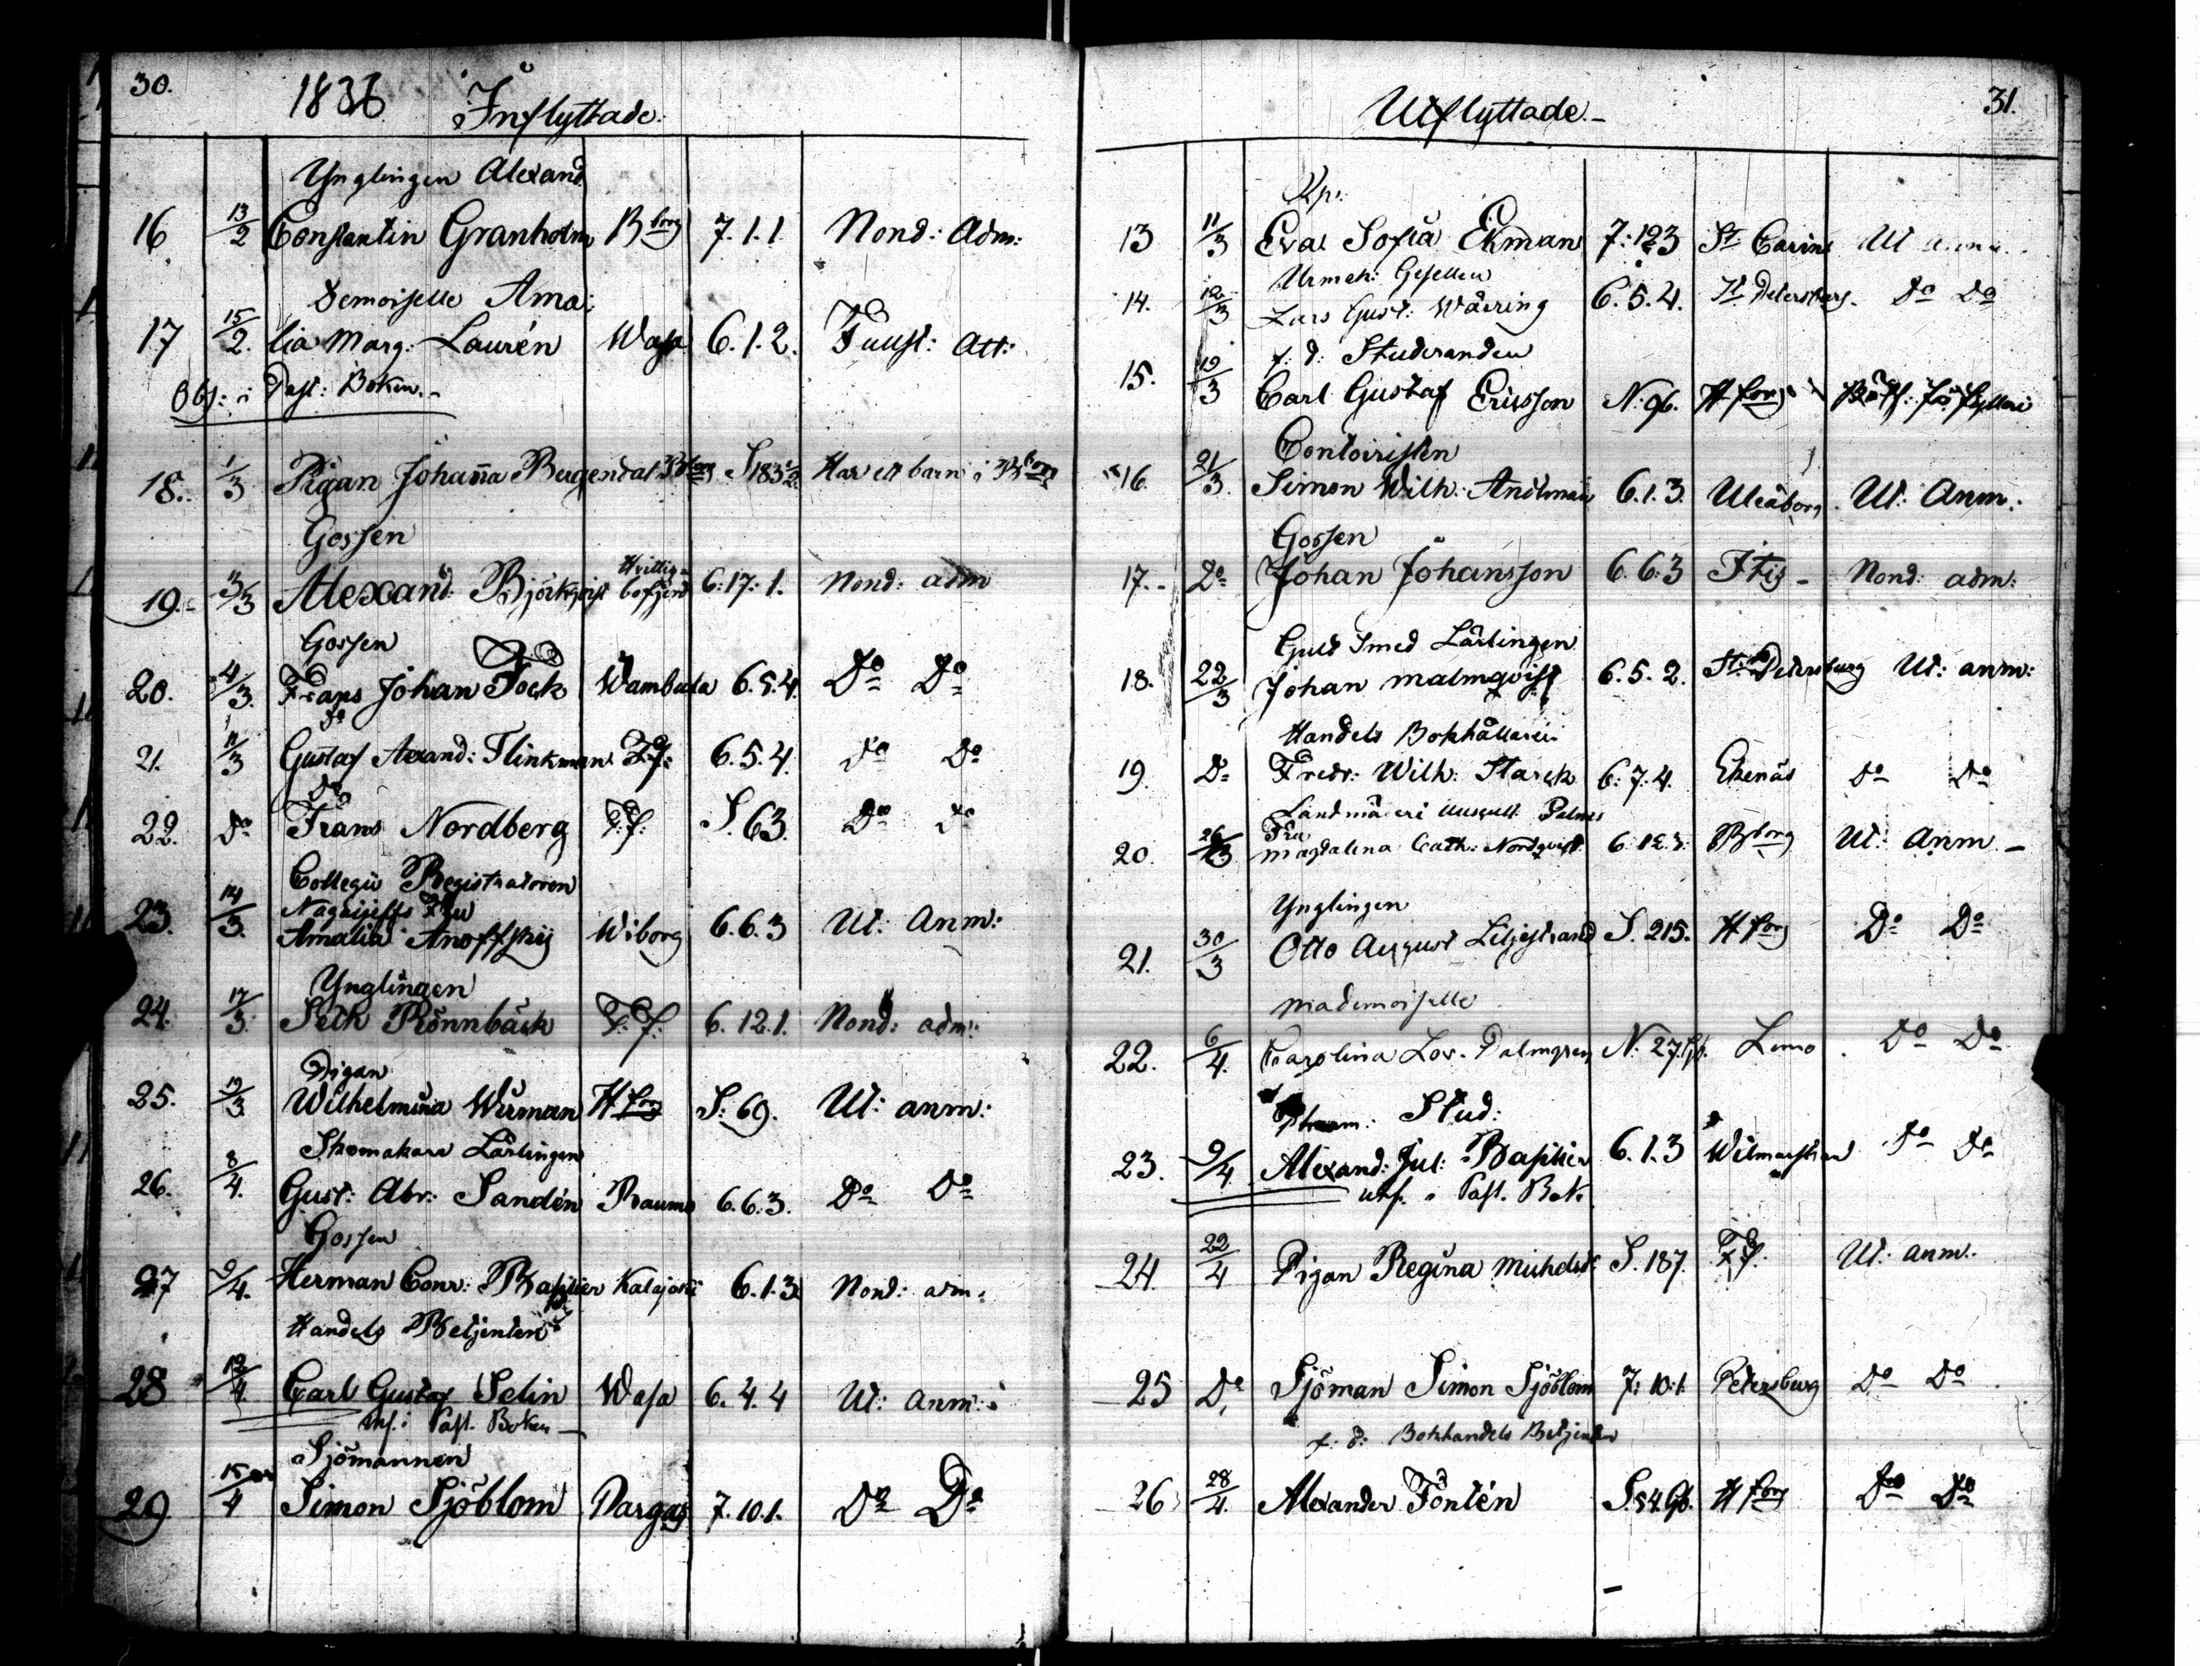 30.
1836 Inflyttade.
Ynglingen Alexand.
16 13/2 Constantin Granholm Bborg 7.1.1. Nond: Adm:
Demoiselle Ama:
17 15/2. lia Marg: Laurén Wasa 6.1.2. Att:
Obs: i Past: Boken.-
18. 1/3 Pigan Johanna Bergendal S 183 Har ett barn i Bborg
Gossen
19. 3/3 Alexand: Björkqvist 6:17:1. Nond: adm
Gossen
20. 4/3. Frans Johan Fock Wambula 6.5.4. Do Do
Do
21. 11/3 Gustaf Alexand: Flinkman 6.5.4. Do Do
Do
22. Do Frans Nordberg S. 63. Do Do
Collegii Registratoren
23. 14/3. Fru
Amalia Anoffskij Wiborg 6.6.3 Ut: Anm:
Ynglingen
24. 17/3. Seth Rönnbäck 6.12.1. Nond: adm:
Pigan
25. 19/3 Wilhelmina Wirman Hfors S: 69. Ut: anm:
Skomakare Lärlingen
26. 8/4. Gust: Abr: Sandén Raumo 6.6.3. Do Do
Gossen
27 9/4. Herman Conr: Kalajoki 6.1.3 Nond: adm:
Handels Betjenten
28 12/4. Carl Gustaf Selin Wasa 6.4.4 Ut: Anm:
Past. Boken
Sjömannen
29. 15/4 Simon Sjöblom Pargas 7.10.1. Do Do
Utflyttade.- 31.
13 11/3 Eva Sofia Ekman 7:123 St Carins Ut anm.
Urmak: Gesellen
14. 12/3 Lars Gust: Wäering 6.5.4. St Petersburg. Do Do
f: d: Studeranden
15. 19/3 Carl Gustaf Ericsson N: 96. Hfors
Contoiristen
16. 21/3. Simon Wilh: 6.1.3. Uleåborg Ut: Anm.
Gossen
17.- Do Johan Johansson 6.6.3 Nond: adm:
Guld Smed Lärlingen
18. 22/3 Johan Malmqvist 6.5.2. St: Petersburg Ut: anm:
Handels Bokhållaren
19. Do Fredr: Wilh: Starck 6.7.4. Ekenäs Do Do
Landmäteri Auscult:
Fru
20. 26/3 Magdalena Cath: Nordqvist Bborg Ut: Anm.-
Ynglingen
21. 30/3 Otto August Liljestrand S. 215. Hfors Do Do
Mademoiselle
22. 6/4. Carolina Lov. Palmgren N: 27 Lemo. Do Do
Stud:
23. 9/4. Alexand: Jul: 6.1.3 Wilmanstrand Do Do
utf. i Past. Bok.
24. 22/4 Pigan Regina Michelsd: S. 187. Ut: anm:
25 Do Sjöman Simon Sjöblom 7:10.1 Petersburg Do Do
f: d: Bokhandels Betjenten
26 28/4. Alexander Fontén Hfors Do Do